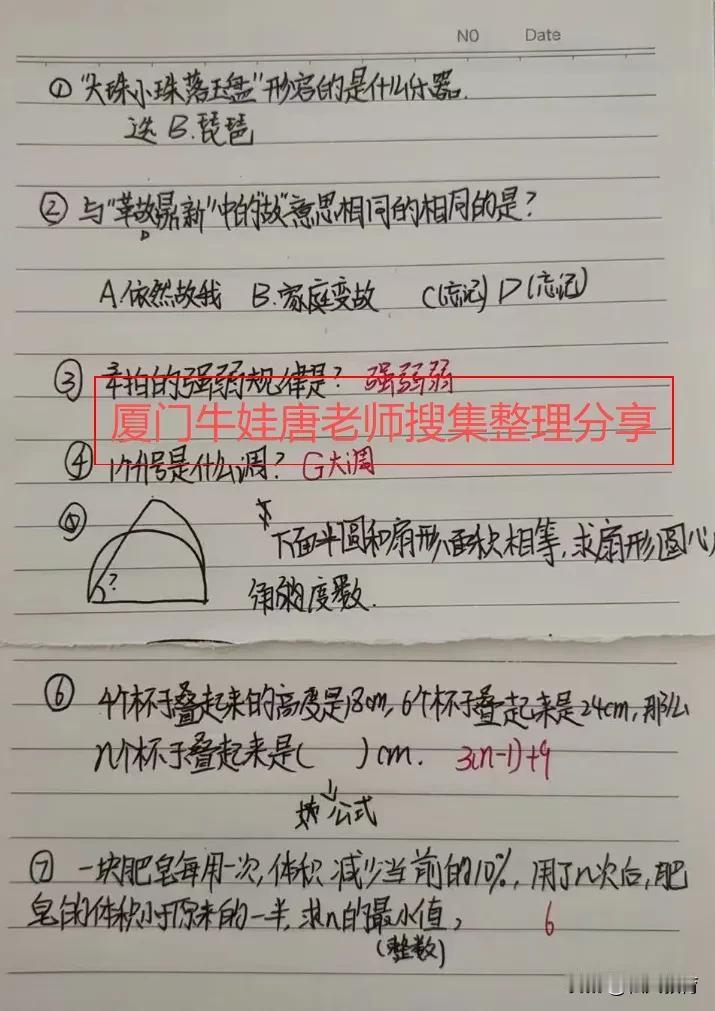 NO Date
① "大珠小珠落玉盘"形容的是什么乐器.
选 B.琵琶
② 与"革故鼎新"中的"故"意思相同的相同的是?
A.依然故我 B.家庭变故 C(忘记) D(忘记)
③ 拍的强弱规律是? 强弱弱
厦门牛娃唐老师搜集整理分享
④ 1个升号是什么调? G大调
⑤
下面半圆和扇形面积相等,求扇形圆心
?
角的度数.
⑥ 4个杯子叠起来的高度是18cm,6个杯子叠起来是24cm,那么
n个杯子叠起来是( )cm. 3(n-1)+9
公式
⑦ 一块肥皂每用一次,体积减少当前的10%,用了n次后,肥
皂的体积小于原来的一半,求n的最小值,
6
(整数)